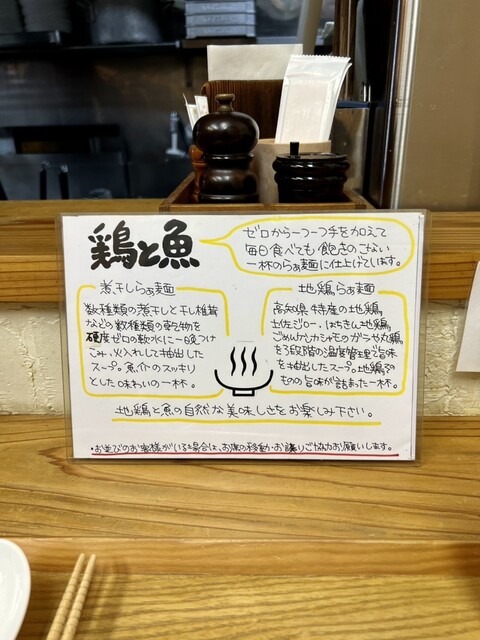 鶏と魚
ゼロから一つ一つ手を加えて
毎日食べても飽きのこない
一杯のらぁ麺に仕上げています。
煮干しらぁ麺
数種類の煮干しと干し椎茸
などの数種類の乾物を
硬度ゼロの軟水に一晩つけ
こみ、火入れして抽出した
スープ。魚介のスッキリ
とした味わいの一杯。
地鶏らぁ麺
高知県特産の地鶏
土佐ジロー、はちきん地鶏
ごめんケンカシャモのガラや丸鶏
を3段階の温度管理で旨味
を抽出したスープ。地鶏その
ものの旨味が詰まった一杯。
地鶏と魚の自然な美味しさをお楽しみ下さい。
・お並びのお客様がいる場合は、お席の移動・お譲りご協力お願いします。